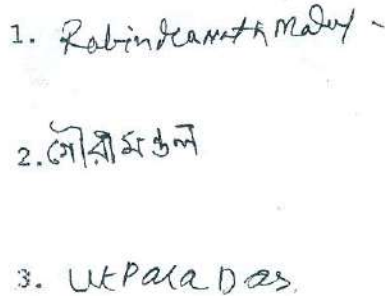 1. Rabindranath
2. গৌরী মন্ডল
3. Utpala Das.